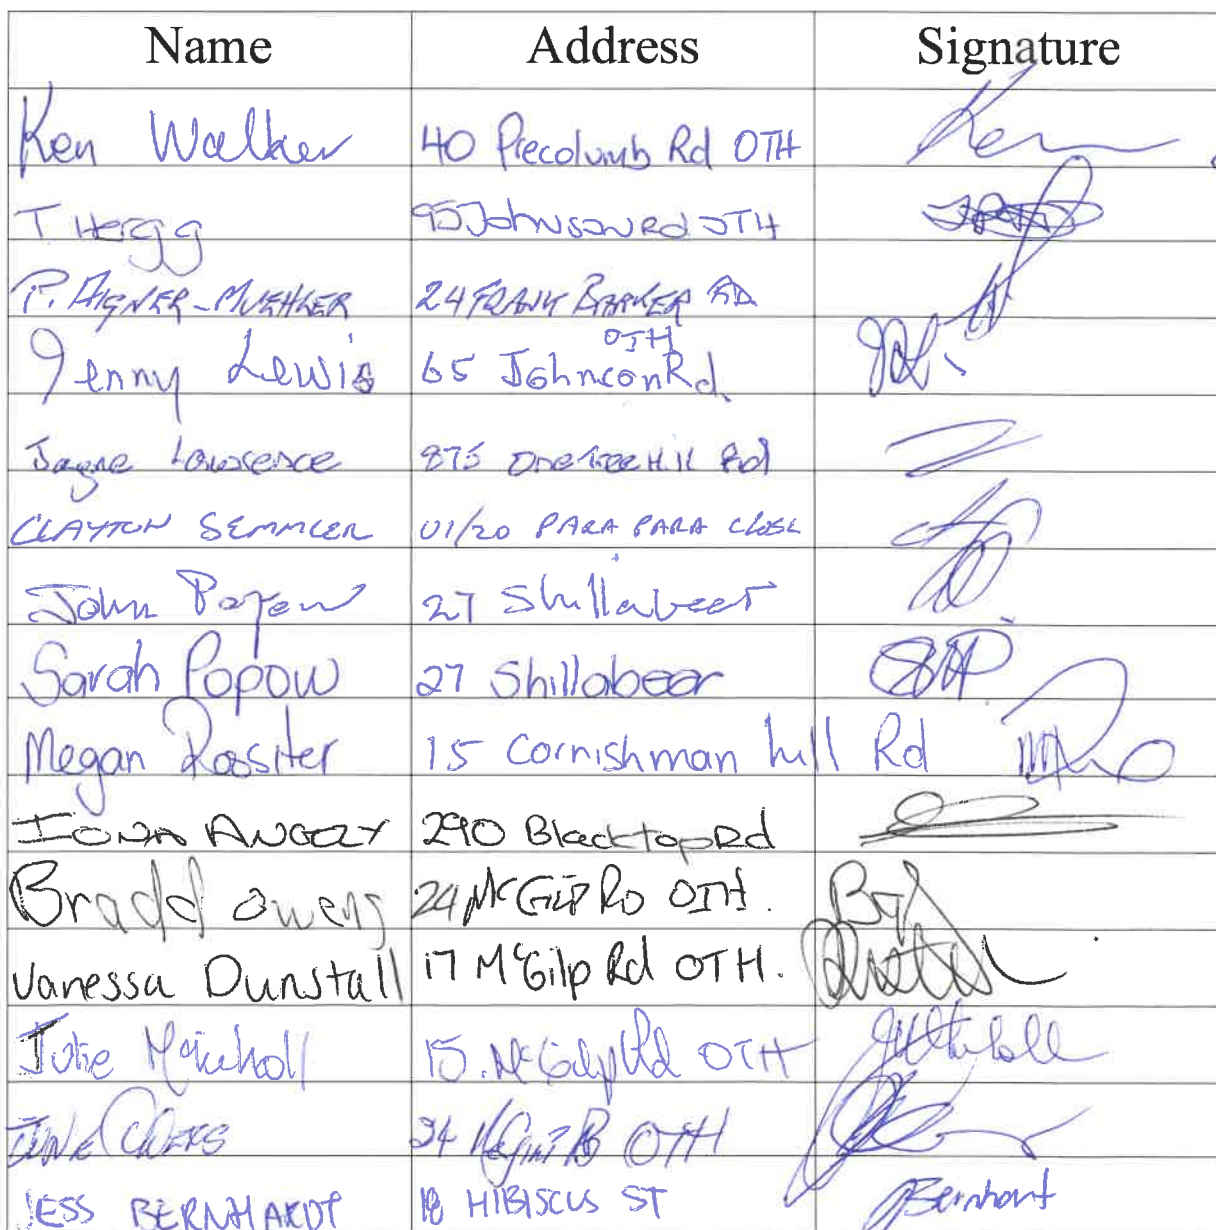 Name Address Signature
Ken Walker 40 Precolumb Rd OTH Ken
T Hergg 95 Johnson Rd OTH
P. AIGNER-MUEHLER 24 FRANK BARKER RD
OTH
Jenny Lewis 65 Johnson Rd.
Jayne Lawrence 875 One Tree Hill Rd
CLAYTON SEMMLER U1/20 PARA PARA CLOSE
John Popow 27 Shillabeer
Sarah Popow 27 Shillabeer
Megan Rossiter 15 Cornishman hill Rd
290 Blacktop Rd
Bradd Owens 24 McGilp RD OTH.
Vanessa Dunstall 17 McGilp Rd OTH.
Julie 15. McGilp Rd OTH
JUNE 24 OTH
JESS BERNHARDT 18 HIBISCUS ST JBernhart